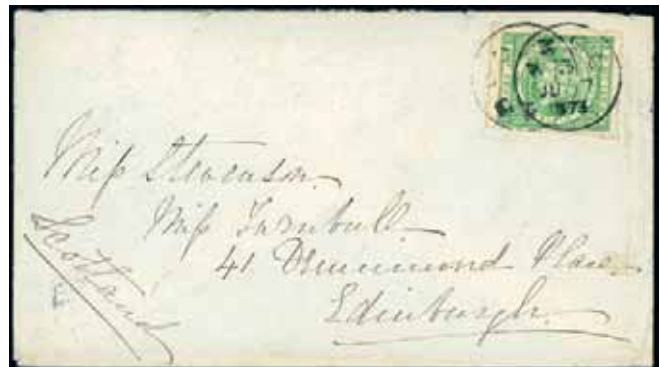 JU 7
874
Miss Stevenson
Miss Turnbull
41 Drummond Place
Edinburgh
Scotland